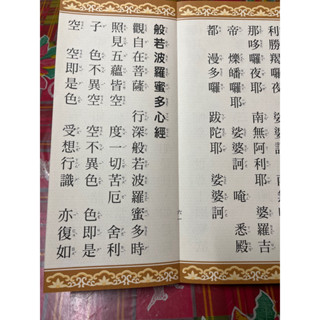 利勝羯囉夜
那哆囉夜耶　南無阿利耶　婆羅吉
帝　爍皤囉耶　娑婆訶　唵　悉殿
都　漫多囉　跋陀耶　娑婆訶
般若波羅蜜多心經
觀自在菩薩　行深般若波羅蜜多時
照見五蘊皆空　度一切苦厄　舍利
子　色不異空　空不異色　色即是
空　空即是色　受想行識　亦復如